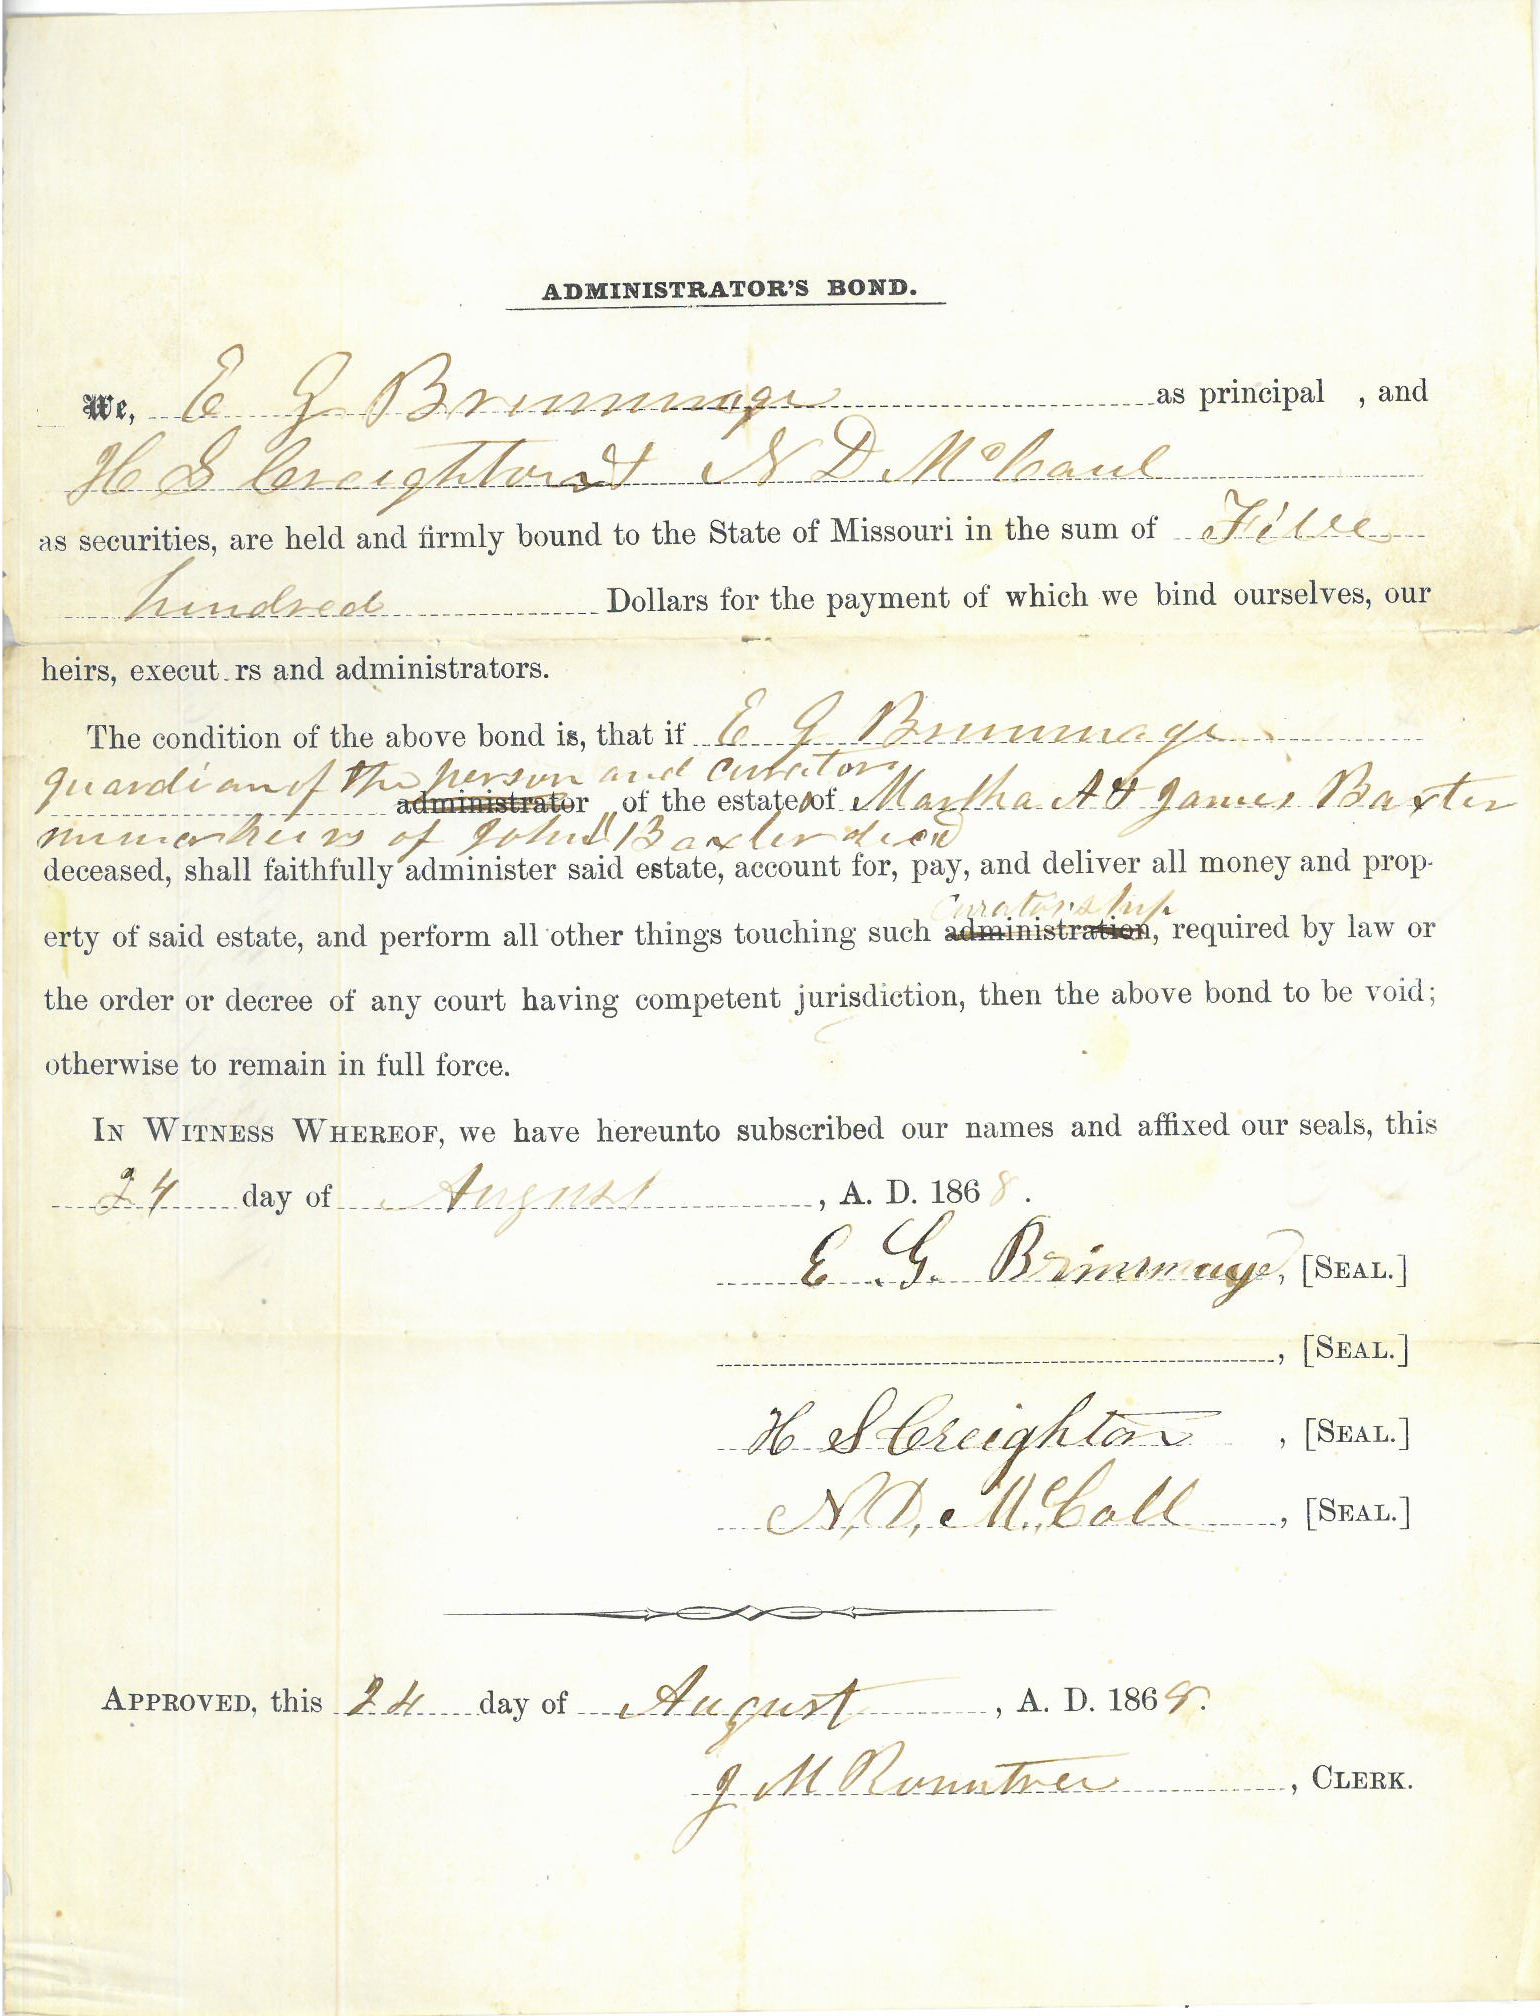 ADMINISTRATOR'S BOND.
We, E G Brummage as principal , and
H S Creighton & N D McCaul
as securities, are held and firmly bound to the State of Missouri in the sum of Five
hundred Dollars for the payment of which we bind ourselves, our
heirs, execut rs and administrators.
The condition of the above bond is, that if E G Brummage
guardian of the person and curator
administrator of the estates of Martha A & James Baxter
minor heirs of John Baxter decd
deceased, shall faithfully administer said estate, account for, pay, and deliver all money and prop-
curatorship
erty of said estate, and perform all other things touching such administration, required by law or
the order or decree of any court having competent jurisdiction, then the above bond to be void;
otherwise to remain in full force.
IN WITNESS WHEREOF, we have hereunto subscribed our names and affixed our seals, this
24 day of August , A. D. 1868.
E. G. Brimmage, [SEAL.]
, [SEAL.]
H S Creighton , [SEAL.]
N. D. McCall , [SEAL.]
APPROVED, this 24 day of August , A. D. 1868.
J M Rountree , CLERK.